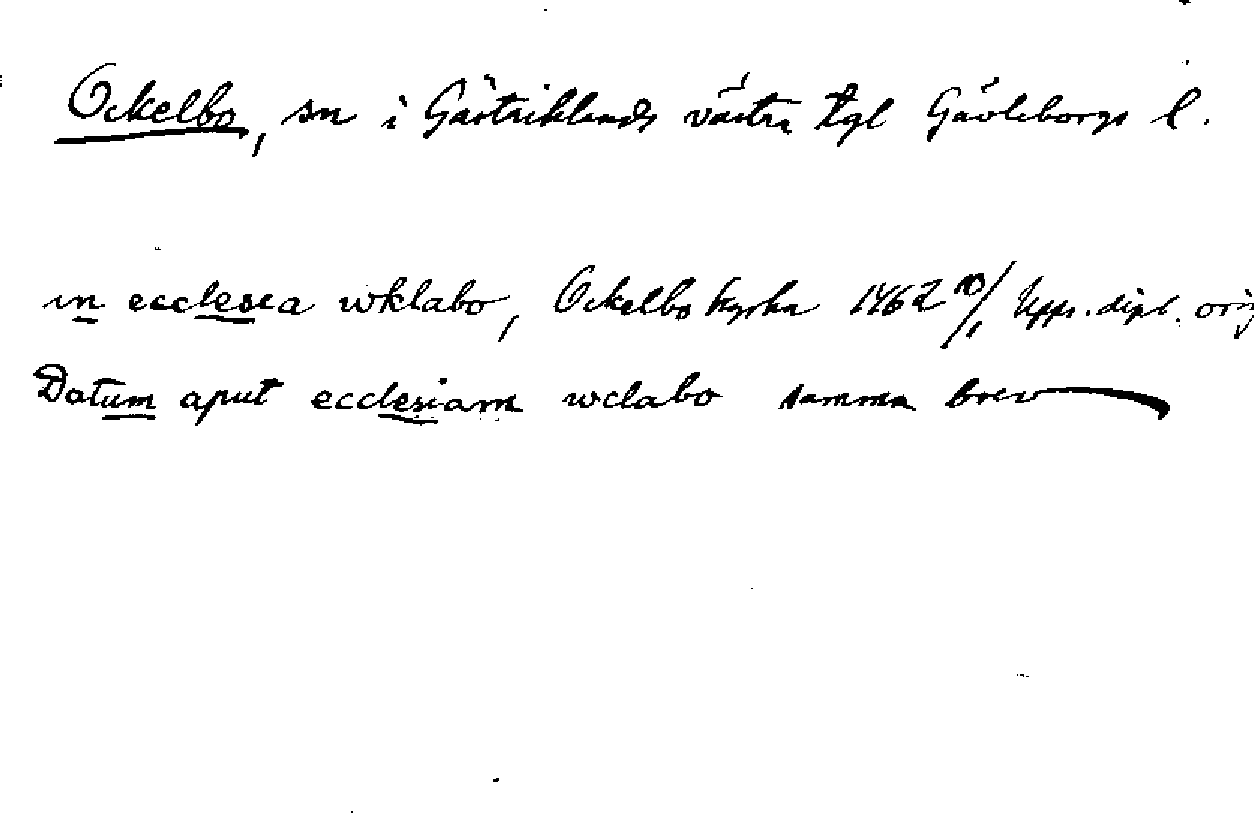 Ockelbo, sn i Gästriklands västra tgl Gävleborgs l.
in ecclesea wklabo, Ockelbo kyrka 1462 10/1 Upps. dipl. orig
Datum aput ecclesiam wclabo samma brev